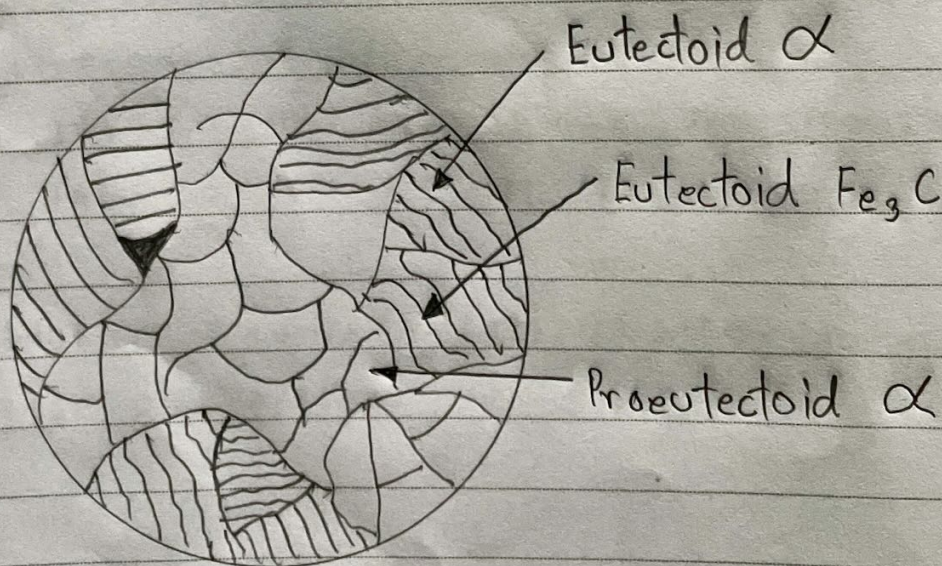 Eutectoid α
Eutectoid Fe₃C
Proeutectoid α